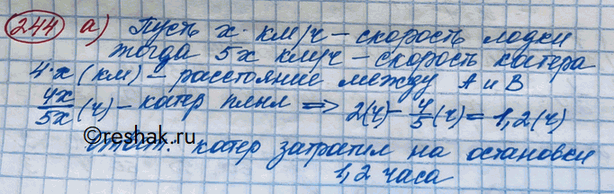 244 а) Пусть х км/ч – скорость лодки
тогда 5х км/ч – скорость катера
4·х (км) – расстояние между А и В
4х/5х (ч) – катер плыл ⇒ 2(ч) – 4/5 (ч) = 1,2 (ч)
©reshak.ru
Ответ: катер затратил на остановки
1,2 часа